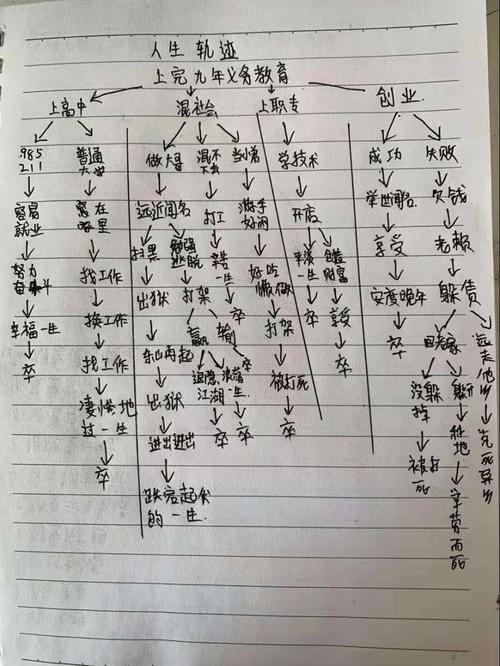 人生 轨迹
上完九年义务教育
上高中 混社会 上职专 创业
985 211
容易就业
努力奋斗
幸福一生
卒
普通大学
窝在哪里
找工作
换工作
找工作
凄惨地过一生
卒
做大哥
远近闻名
扫黑
出狱
东山再起
出狱
进进出出
跌宕起伏的一生
勉强逃脱
打架
赢
退隐江湖
卒
输
一生
卒
卒
混不大
打工
一生
卒
当小弟
游手好闲
好吃懒做
打架
被打死
卒
学技术
开店
平淡一生
卒
创造财富
享受
卒
成功
举世闻名
享受
安度晚年
卒
失败
欠钱
老赖
躲债
回老家
没躲掉
被打死
躲
地
而死
远走他乡
客死异乡